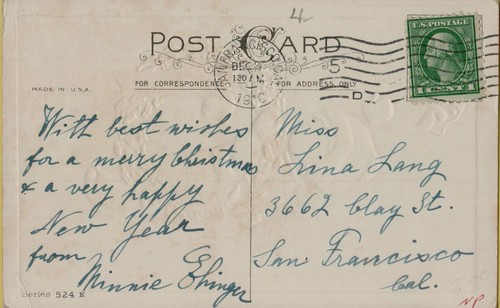 4
POST CARD
U.S. POSTAGE
1 CENT 1
SAN FRANCISCO, CAL.
DEC
130 P.M.
191
5
D
FOR CORRESPONDENCE
FOR ADDRESS ONLY
MADE IN U.S.A.
With best wishes
for a merry Christmas
& a very happy
New Year
from
Minnie Ehinger
Miss
Lina Lang
3662 Clay St.
San Francisco
Cal.
Series 524 E
NP